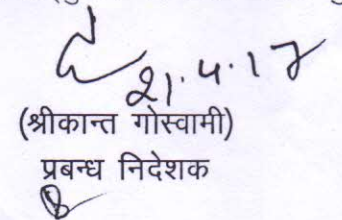 21.4.17
(श्रीकान्त गोस्वामी)
प्रबन्ध निदेशक